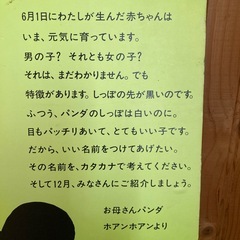 6月1日にわたしが生んだ赤ちゃんは
いま、元気に育っています。
男の子？ それとも女の子？
それは、まだわかりません。でも
特徴があります。しっぽの先が黒いのです。
ふつう、パンダのしっぽは白いのに。
目もパッチリあいて、とてもいい子です。
だから、いい名前をつけてあげたい。
その名前を、カタカナで考えてください。
そして12月、みなさんにご紹介しましょう。
お母さんパンダ
ホアンホアンより